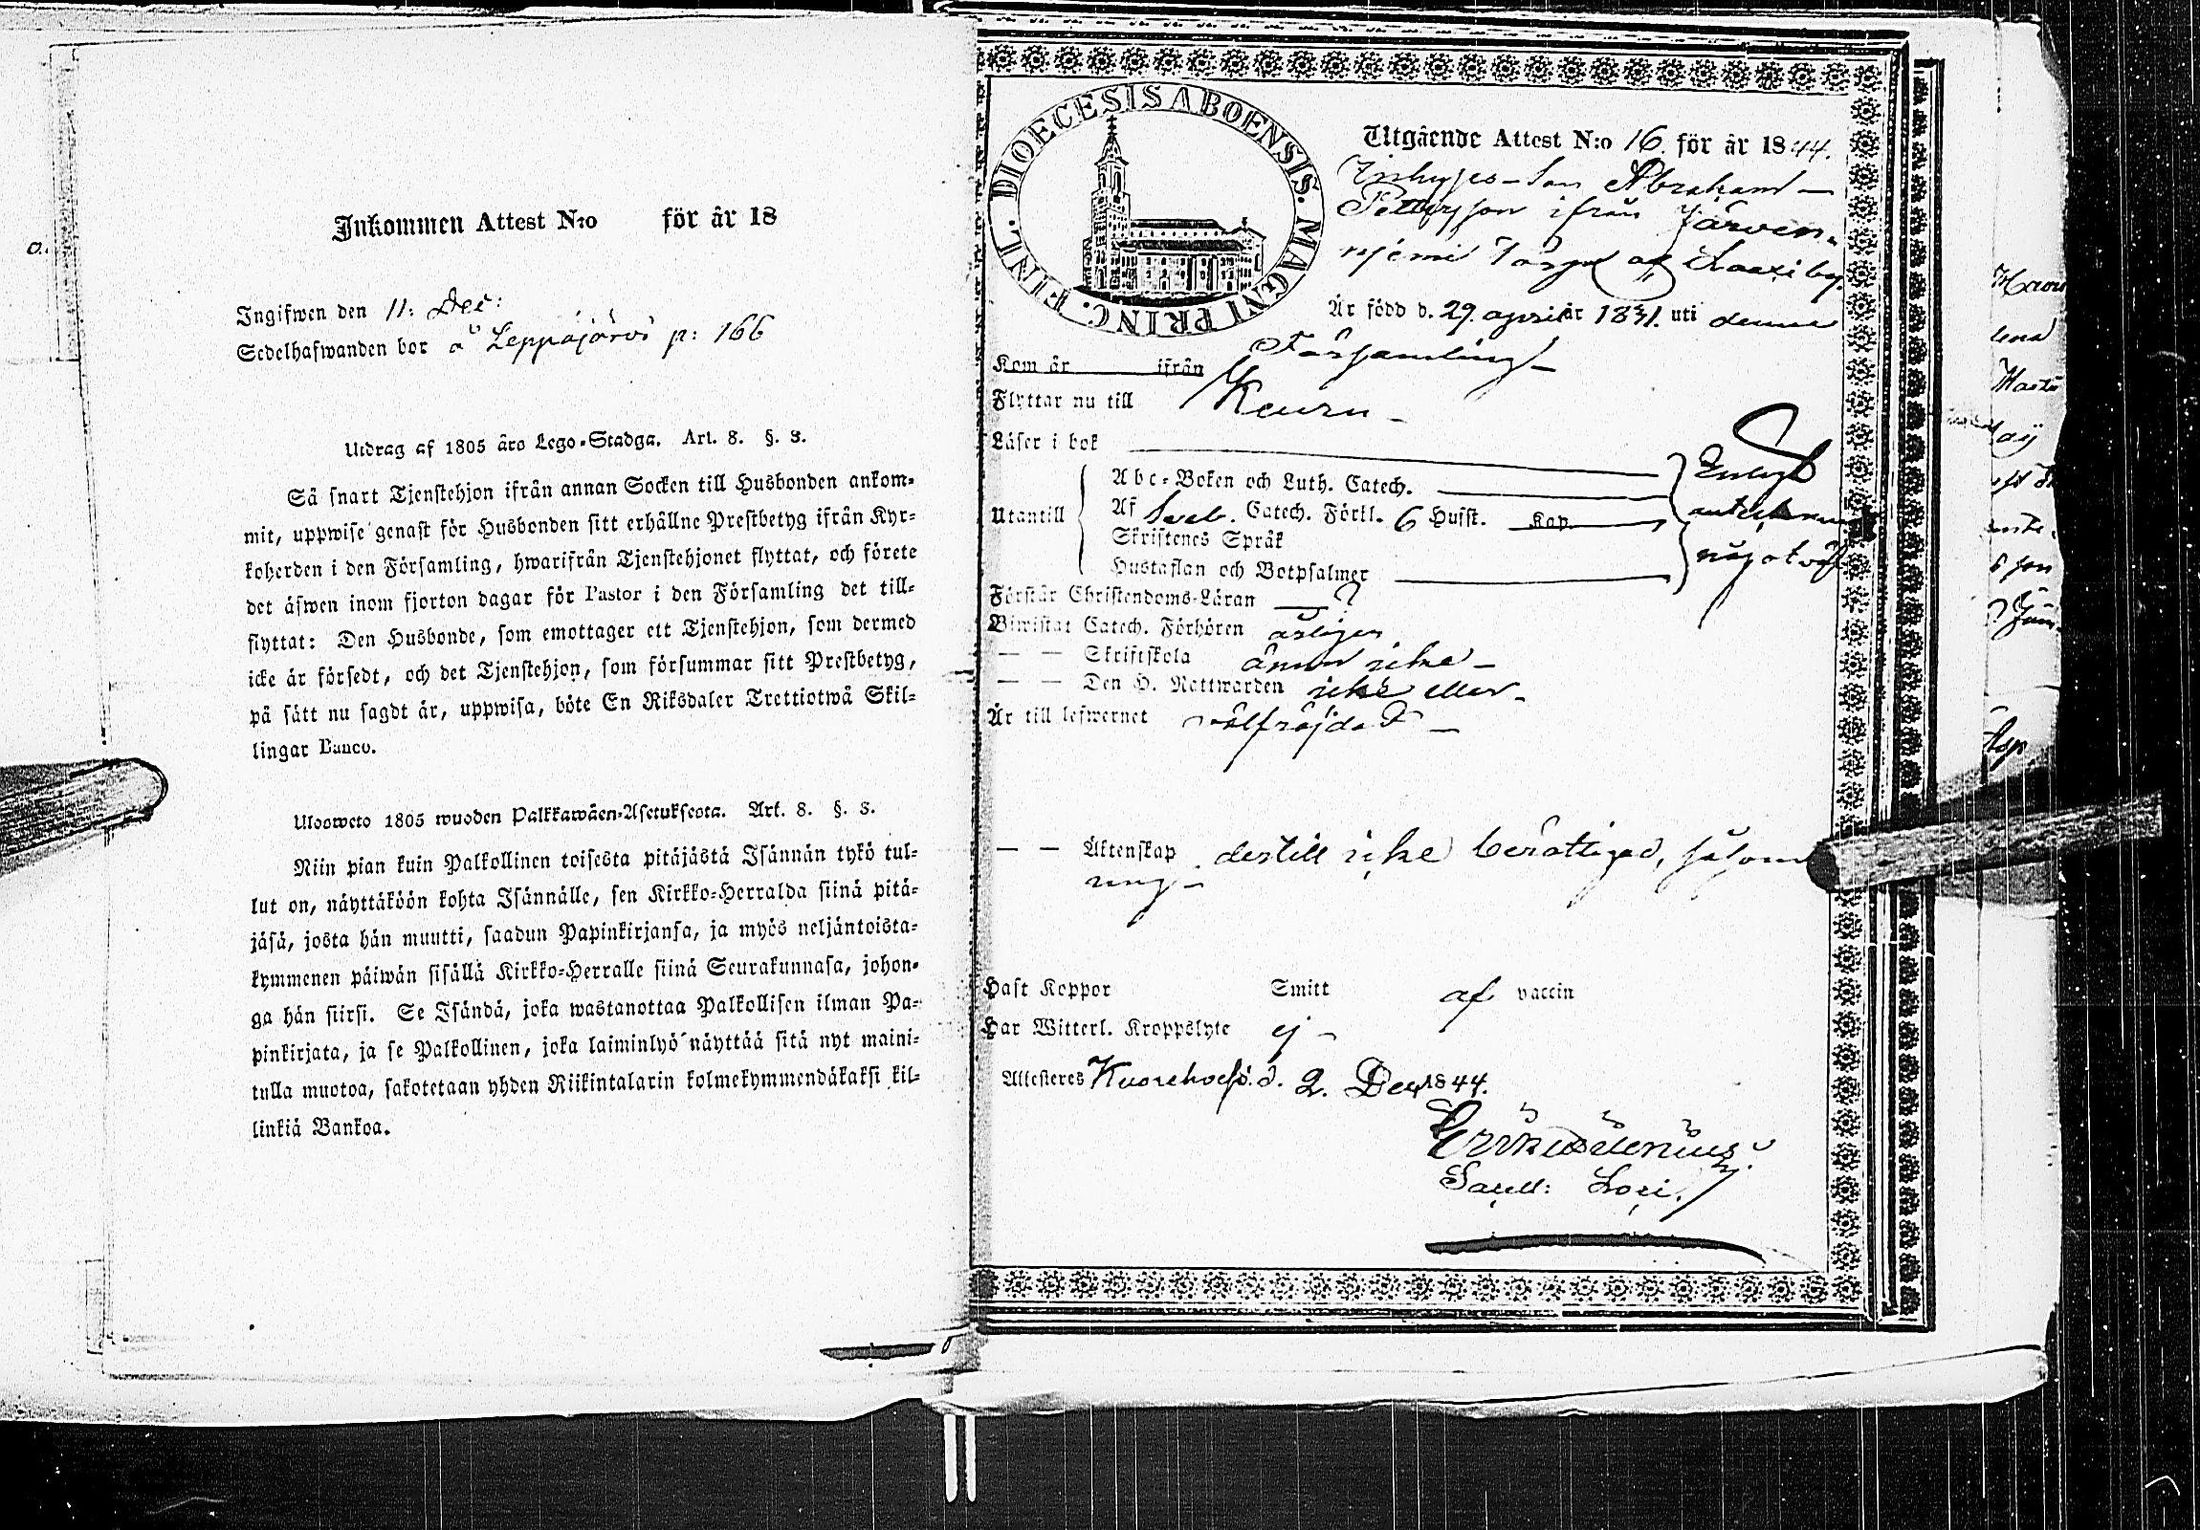 Inkommen Attest N:o för år 18
Ingifwen den 11: Dec:
Sedelhafwanden bor å Leppäjärvi p: 166
Utdrag af 1805 års Lego-Stadga. Art. 8. §. 3.
Så snart Tjenstehjon ifrån annan Socken till Husbonden ankom-
mit, uppwise genast för Husbonden sitt erhållne Prestbetyg ifrån Kyr-
koherden i den Församling, hwarifrån Tjenstehjonet flyttat, och förete
det äfwen inom fjorton dagar för Pastor i den Församling det till-
flyttat: Den Husbonde, som emottager ett Tjenstehjon, som dermed
icke är försedt, och det Tjenstehjon, som försummar sitt Prestbetyg,
på sätt nu sagdt är, uppwisa, böte En Riksdaler Trettiotwå Skil-
lingar Banco.
Ulosweto 1805 wuoden Palkkawäen-Asetuksesta. Art. 8. §. 3.
Niin pian kuin Palkollinen toisesta pitäjästä Isännän tykö tul-
lut on, näyttäköön kohta Isännälle, sen Kirkko-Herralda siinä pitä-
jäsä, josta hän muutti, saadun Papinkirjansa, ja myös neljäntoista-
kymmenen päiwän sisällä Kirkko-Herralle siinä Seurakunnasa, johon-
ga hän siirsi. Se Isändä, joka wastanottaa Palkollisen ilman Pa-
pinkirjata, ja se Palkollinen, joka laiminlyö näyttää sitä nyt maini-
tulla muotoa, sakotetaan yhden Riikintalarin kolmekymmendäkaksi kil-
linkiä Bankoa.
DIOECESIS ABOENSIS. MAGNI PRINC. FINL.
Utgående Attest N:o 16. för år 1844.
Inhyses-Son Abraham
Pettersson ifrån Järven-
niemi Torp af
Är född d. 29. april år 1831. uti denne
Församling
Kom år ifrån
Flyttar nu till Keuru
Läser i bok
Utantill
Abc-Boken och Luth. Catech.
Af Sveb. Catech. Förkl. 6 Hufst. Kap.
Skriftenes Språk
Hustaflan och Botpsalmer
Enligt
anteckning
något
Förstår Christendoms-Läran
Biwistat Catech. Förhören årligen
— — Skriftskola ännu icke
— — Den H. Nattwarden icke eller
Är till lefwernet välfrejdad
— — Äktenskap dertill icke berättigad, såsom
ung
Haft Koppor Smitt af vaccin
Har Witterl. Kroppslyte ej
Attesteras Kuorehvesi. d. 2. Dec 1844.
Sacell: